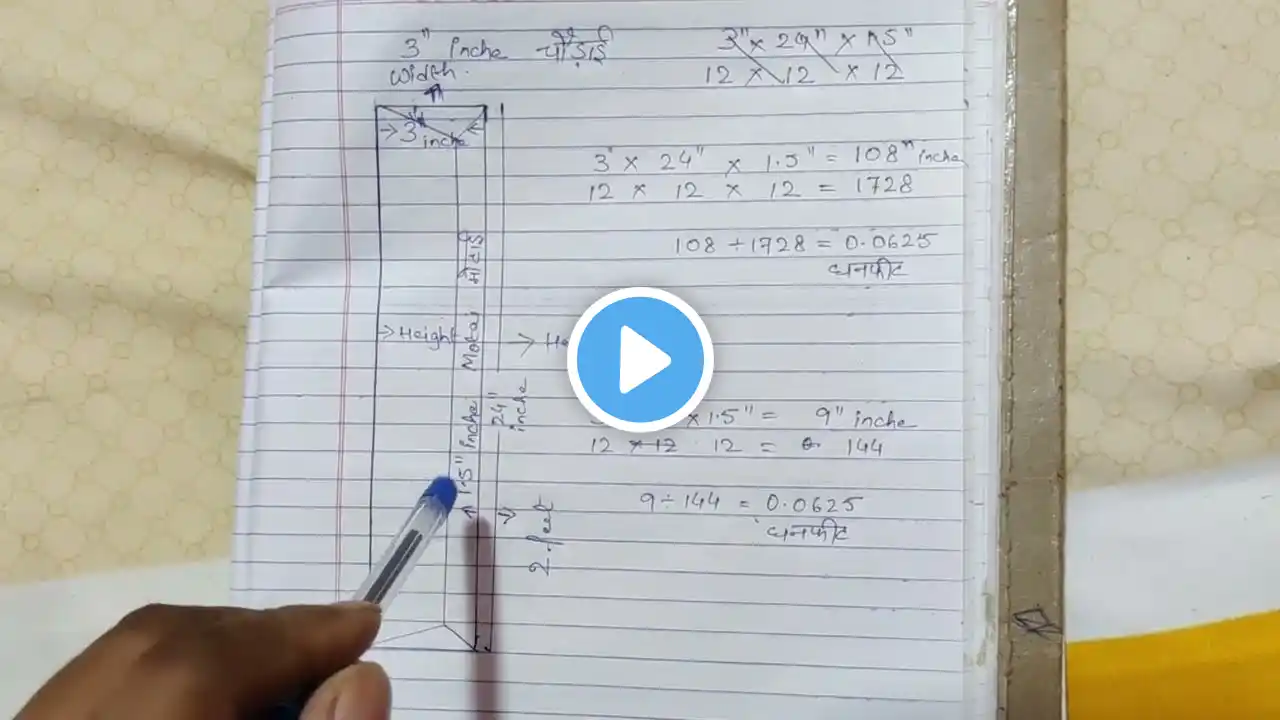 3" Inche चौड़ाई
Width.
3" x 24" x 1.5"
12 x 12 x 12
→ 3 inche ←
3" x 24" x 1.5" = 108" inche
12 x 12 x 12 = 1728
108 ÷ 1728 = 0.0625
घनफीट
→ Height
1.5" Inche Motai मोटाई
24" inche
2 feet
x 1.5" = 9" inche
12 x 12 12 = 144
9 ÷ 144 = 0.0625
घनफीट